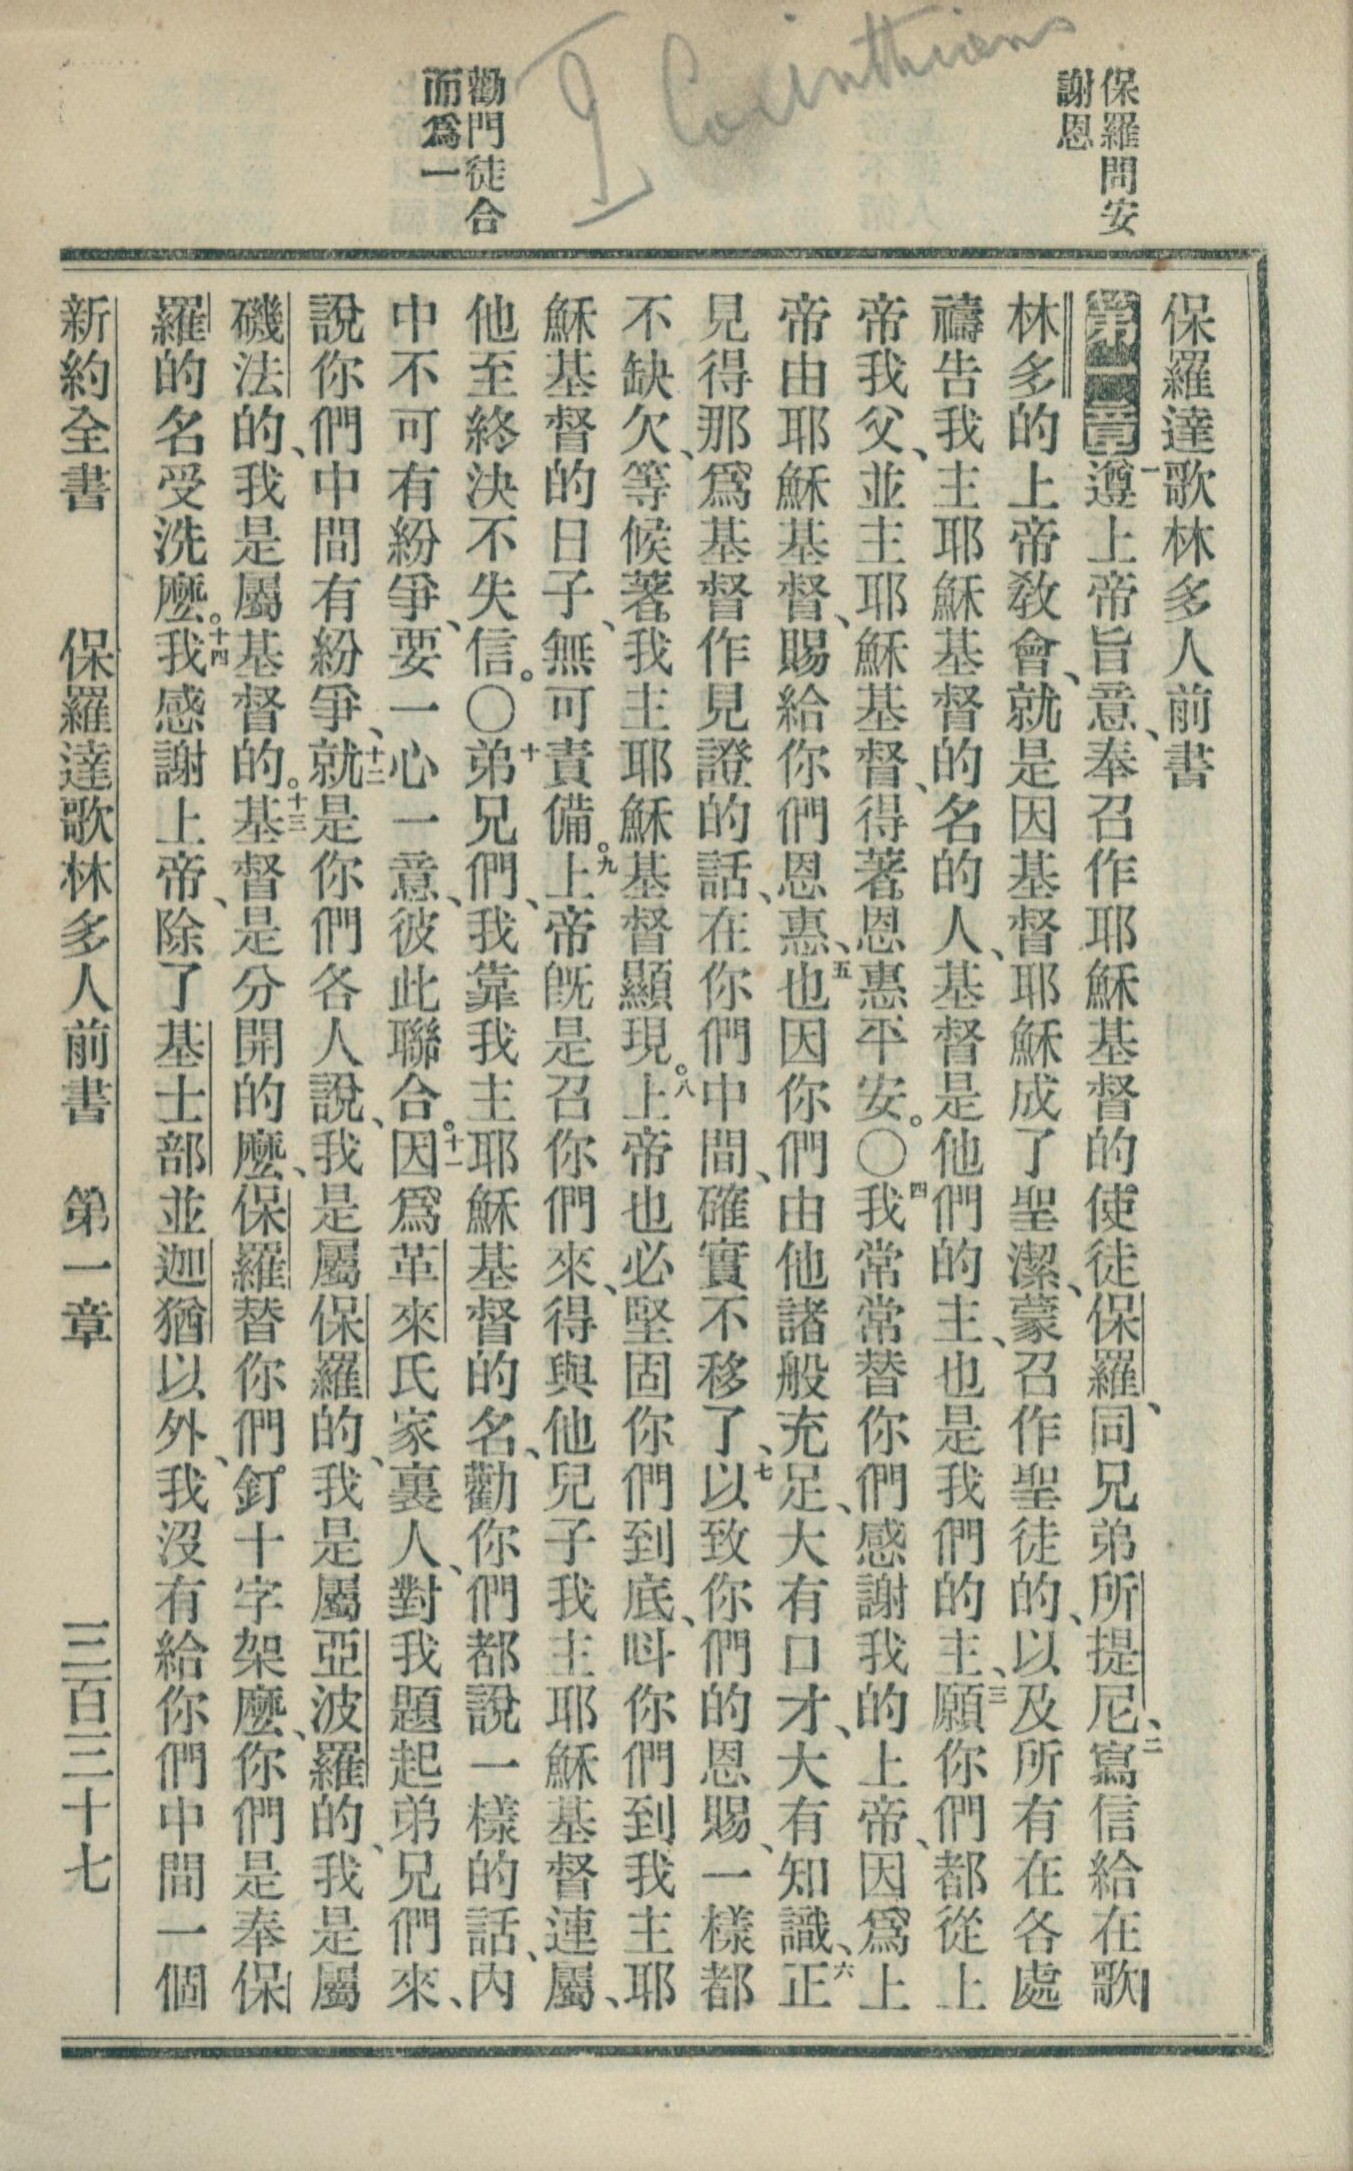 I Corinthians
保羅問安
謝恩
勸門徒合
而爲一
保羅達歌林多人前書
第一章 一遵上帝旨意、奉召作耶穌基督的使徒保羅、同兄弟所提尼、二寫信給在歌
林多的上帝敎會、就是因基督耶穌成了聖潔、蒙召作聖徒的、以及所有在各處
禱告我主耶穌基督的名的人、基督是他們的主、也是我們的主、三願你們都從上
帝我父、並主耶穌基督、得著恩惠平安。〇四我常常替你們感謝我的上帝、因爲上
帝由耶穌基督、賜給你們恩惠、五也因你們由他諸般充足、大有口才、大有知識、六正
見得那爲基督作見證的話、在你們中間、確實不移了、七以致你們的恩賜、一樣都
不缺欠、等候著我主耶穌基督顯現。八上帝也必堅固你們到底、呌你們到我主耶
穌基督的日子、無可責備。九上帝旣是召你們來、得與他兒子我主耶穌基督連屬、
他至終決不失信。〇十弟兄們、我靠我主耶穌基督的名、勸你們都說一樣的話、內
中不可有紛爭、要一心一意、彼此聯合。十一因爲革來氏家裏人、對我題起弟兄們來、
說你們中間有紛爭、十二就是你們各人說、我是屬保羅的、我是屬亞波羅的、我是屬
磯法的、我是屬基督的。十三基督是分開的麼、保羅替你們釘十字架麼、你們是奉保
羅的名受洗麼。十四我感謝上帝、除了基士部並迦猶以外、我沒有給你們中間一個
新約全書 保羅達歌林多人前書 第一章 三百三十七